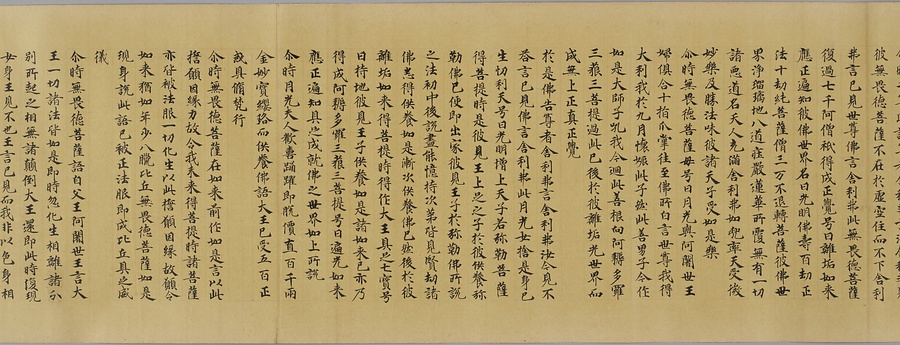 彼無畏德菩薩不在於虛空住而不下舍利
弗言已見世尊佛言舍利弗此無畏德菩薩
復過七千阿僧祇劫得成正覺号曰離垢如來
應正遍知彼佛世界名曰光明佛壽百劫正
法十劫純菩薩僧三万不退轉菩薩彼佛世
界淨瑠璃地八道莊嚴蓮華所覆無有一切
諸惡道名天人充滿舍利弗如兜率天受微
妙樂及勝法味彼諸天子受如是樂
尒時無畏德菩薩母号曰月光與阿闍世王
婦俱合十指爪掌往至佛所白言世尊我得
大利我於九月懷娠此子然此善男子今作
如是大師子吼我今迴此善根向阿耨多羅
三藐三菩提過此已後於彼離垢光世界而
成無上正真正覺
於是佛告尊者舍利弗言舍利弗汝今見不
荅言已見佛言舍利弗此月光女捨是身已
生切利天号曰光明增上天子若弥勒菩薩
得菩提時是彼見王上之之子於彼供養弥
勒佛已便即出家彼見王子於弥勒佛所說
之法初中後說盡能憶持次第皆見賢劫諸
佛悉得供養如是漸次供養佛已然後於彼
離垢如來得菩提時得作大王具之七寶号
曰持地彼見王子供養如是諸如來已亦乃
得成阿耨多羅三藐三菩提号曰遍光如來
應正遍知具之成就佛之世界如上所說
尒時月光夫人歡喜踊躍即脫價直百千兩
金妙寶纓珞而供養佛語大王已受五百正
戒具脩梵行
尒時無畏德菩薩在如來前作如是言以此
擔願因緣力故令我未來得菩提時諸菩薩
亦皆被法服一切化生以此擔願因緣故願令
如來猶如年少八臈比丘無畏德菩薩如是
現身說此語已被正法服即成比丘具之威
儀
尒時無畏德菩薩語自父王阿闍世王言大
王一切諸法皆如是即時忽化生相離諸分
別所起之相無諸顛倒大王還即此時復現
女身王見不也王言已見而我非以色身相